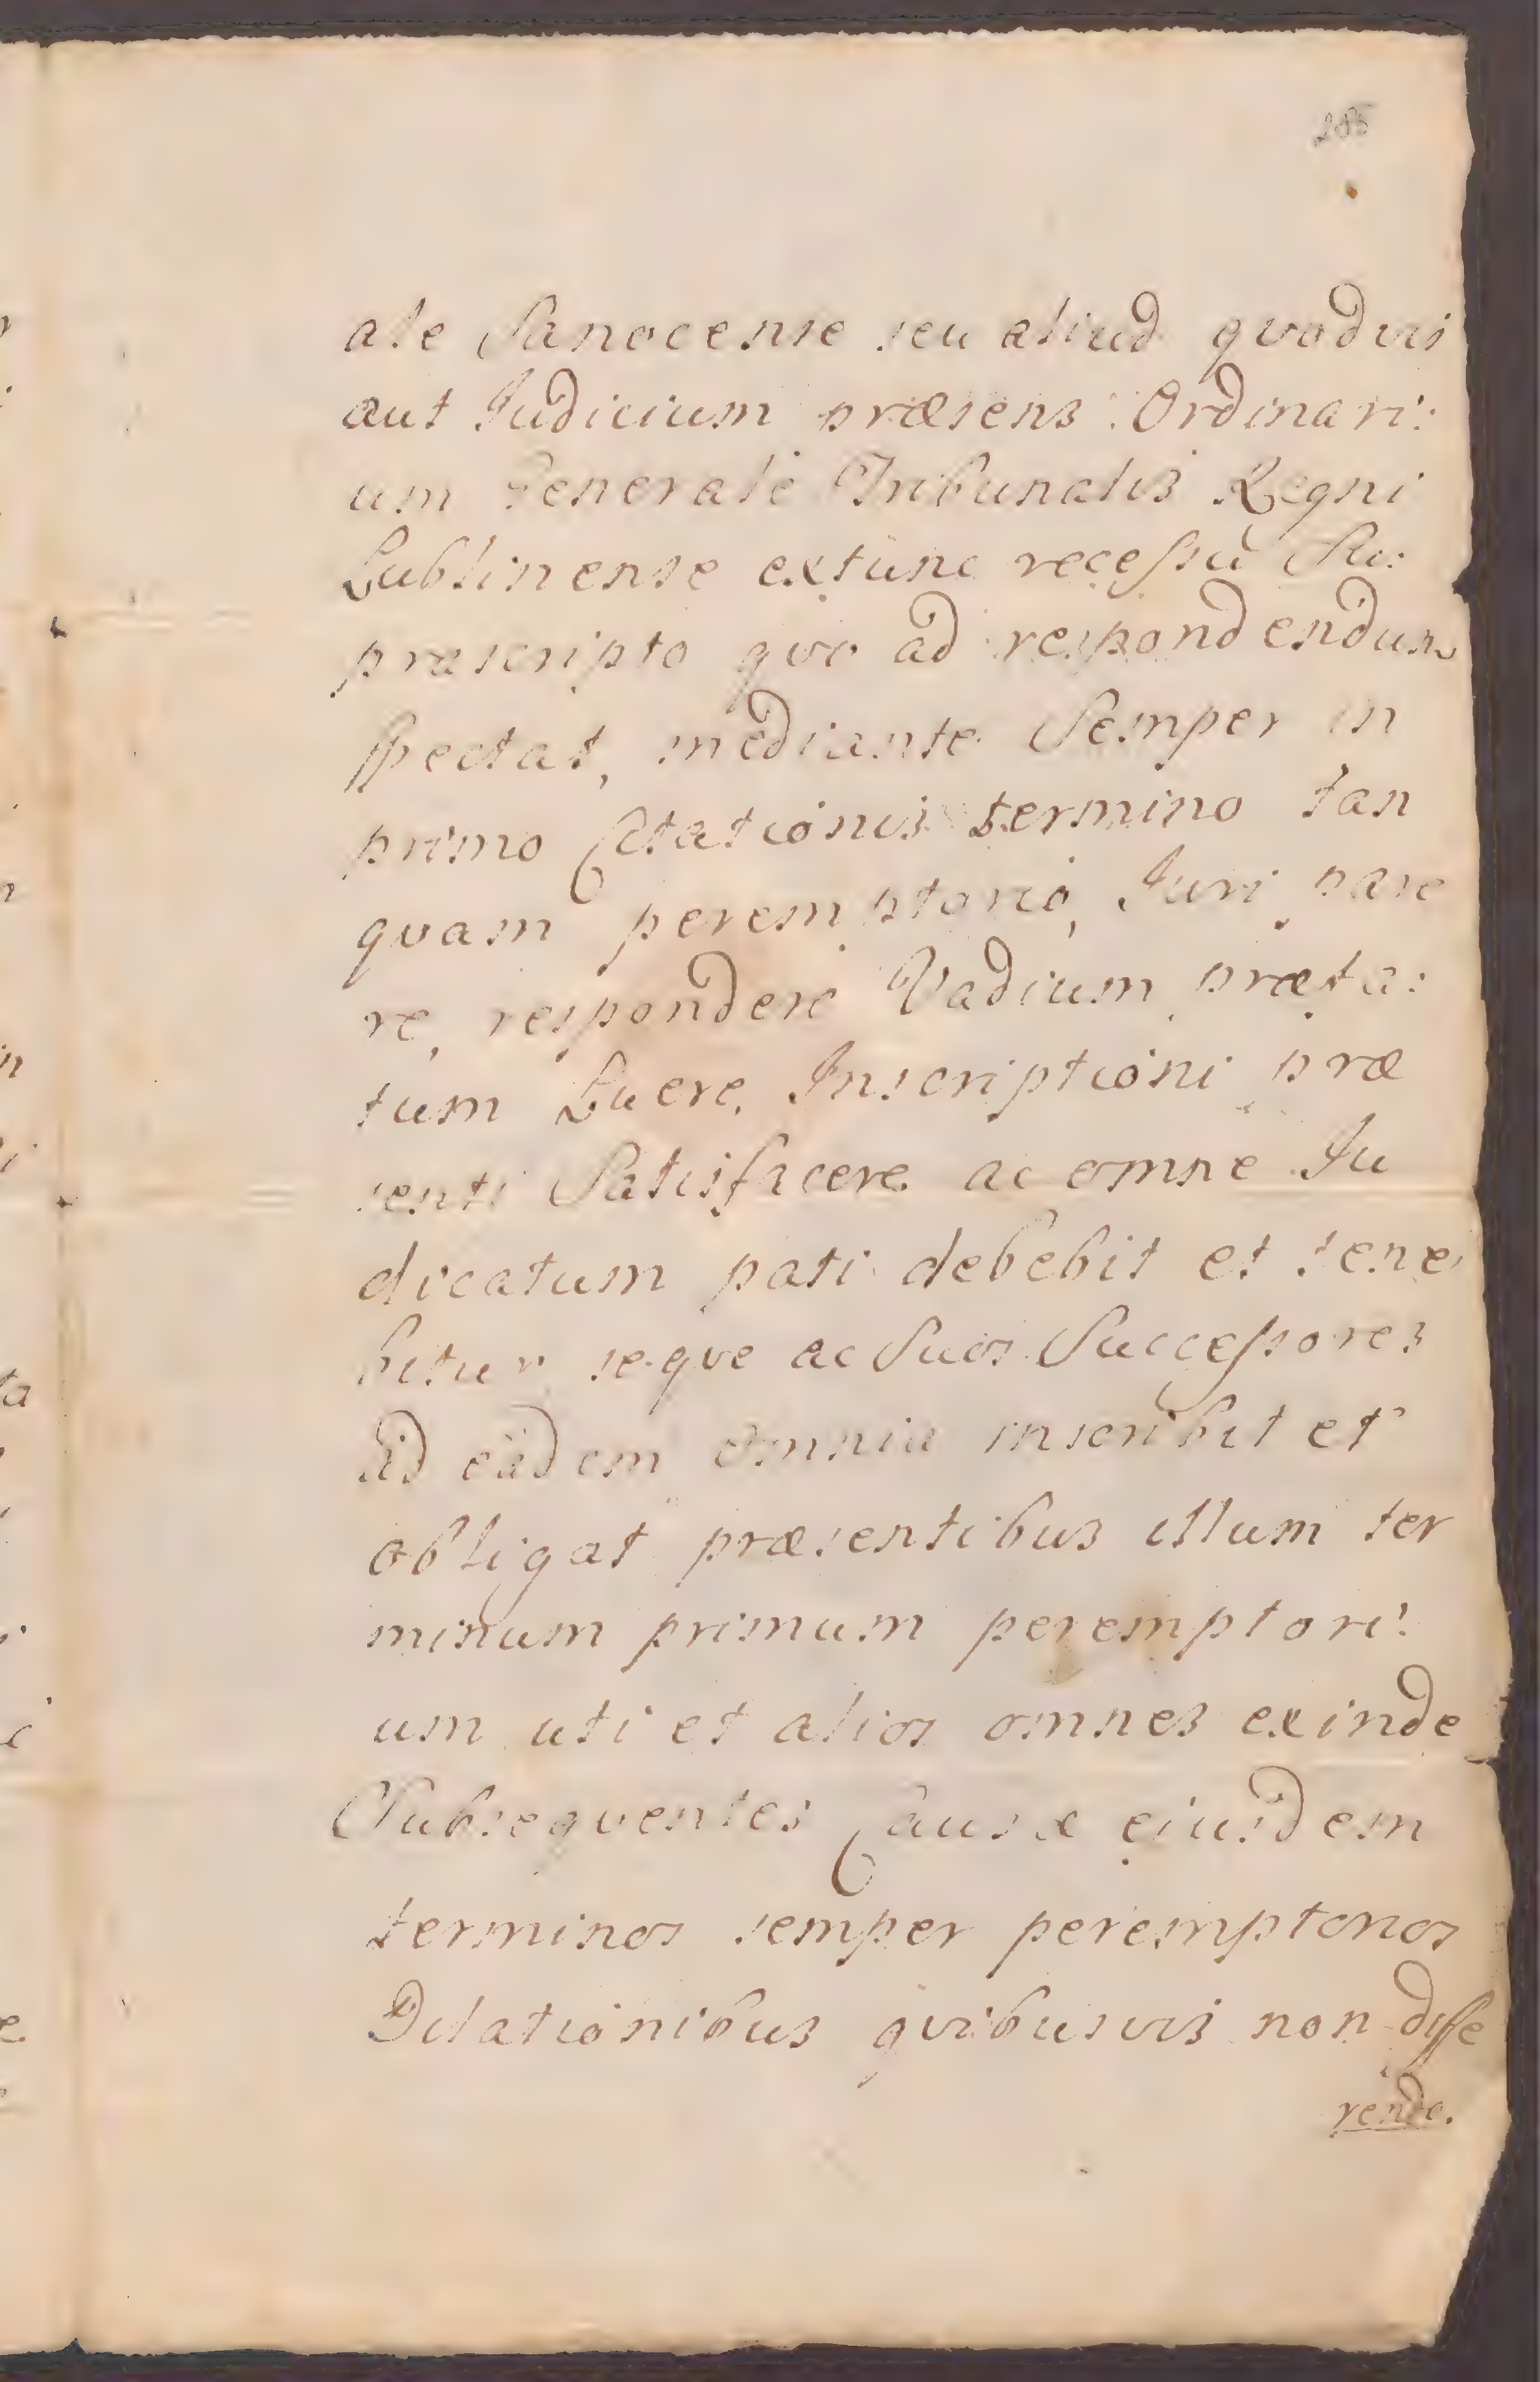 285
ale Sanocense seu aliud quodvis
aut Judicium præsens Ordinari:
um Generale Tribunalis Regni
Lublinense extunc recessu Su:
præscripto quo ad respondendum
spectat, mediante Semper in
primo Citationis termino tan
quam peremptorio, Juri pare
re, respondere Vadium præta:
tum Luere, Inscriptioni præ
senti Satisfacere ac omne Ju
dicatum pati debebit et tene
bitur seque ac Suos Successores
ad eadem omnia inscribit et
obligat præsentibus illum ter
minum primum peremptori:
um uti et alios omnes exinde
Subsequentes Causæ ejusdem
terminos semper peremptorios
Dilationibus quibusvis non diffe
rendo.